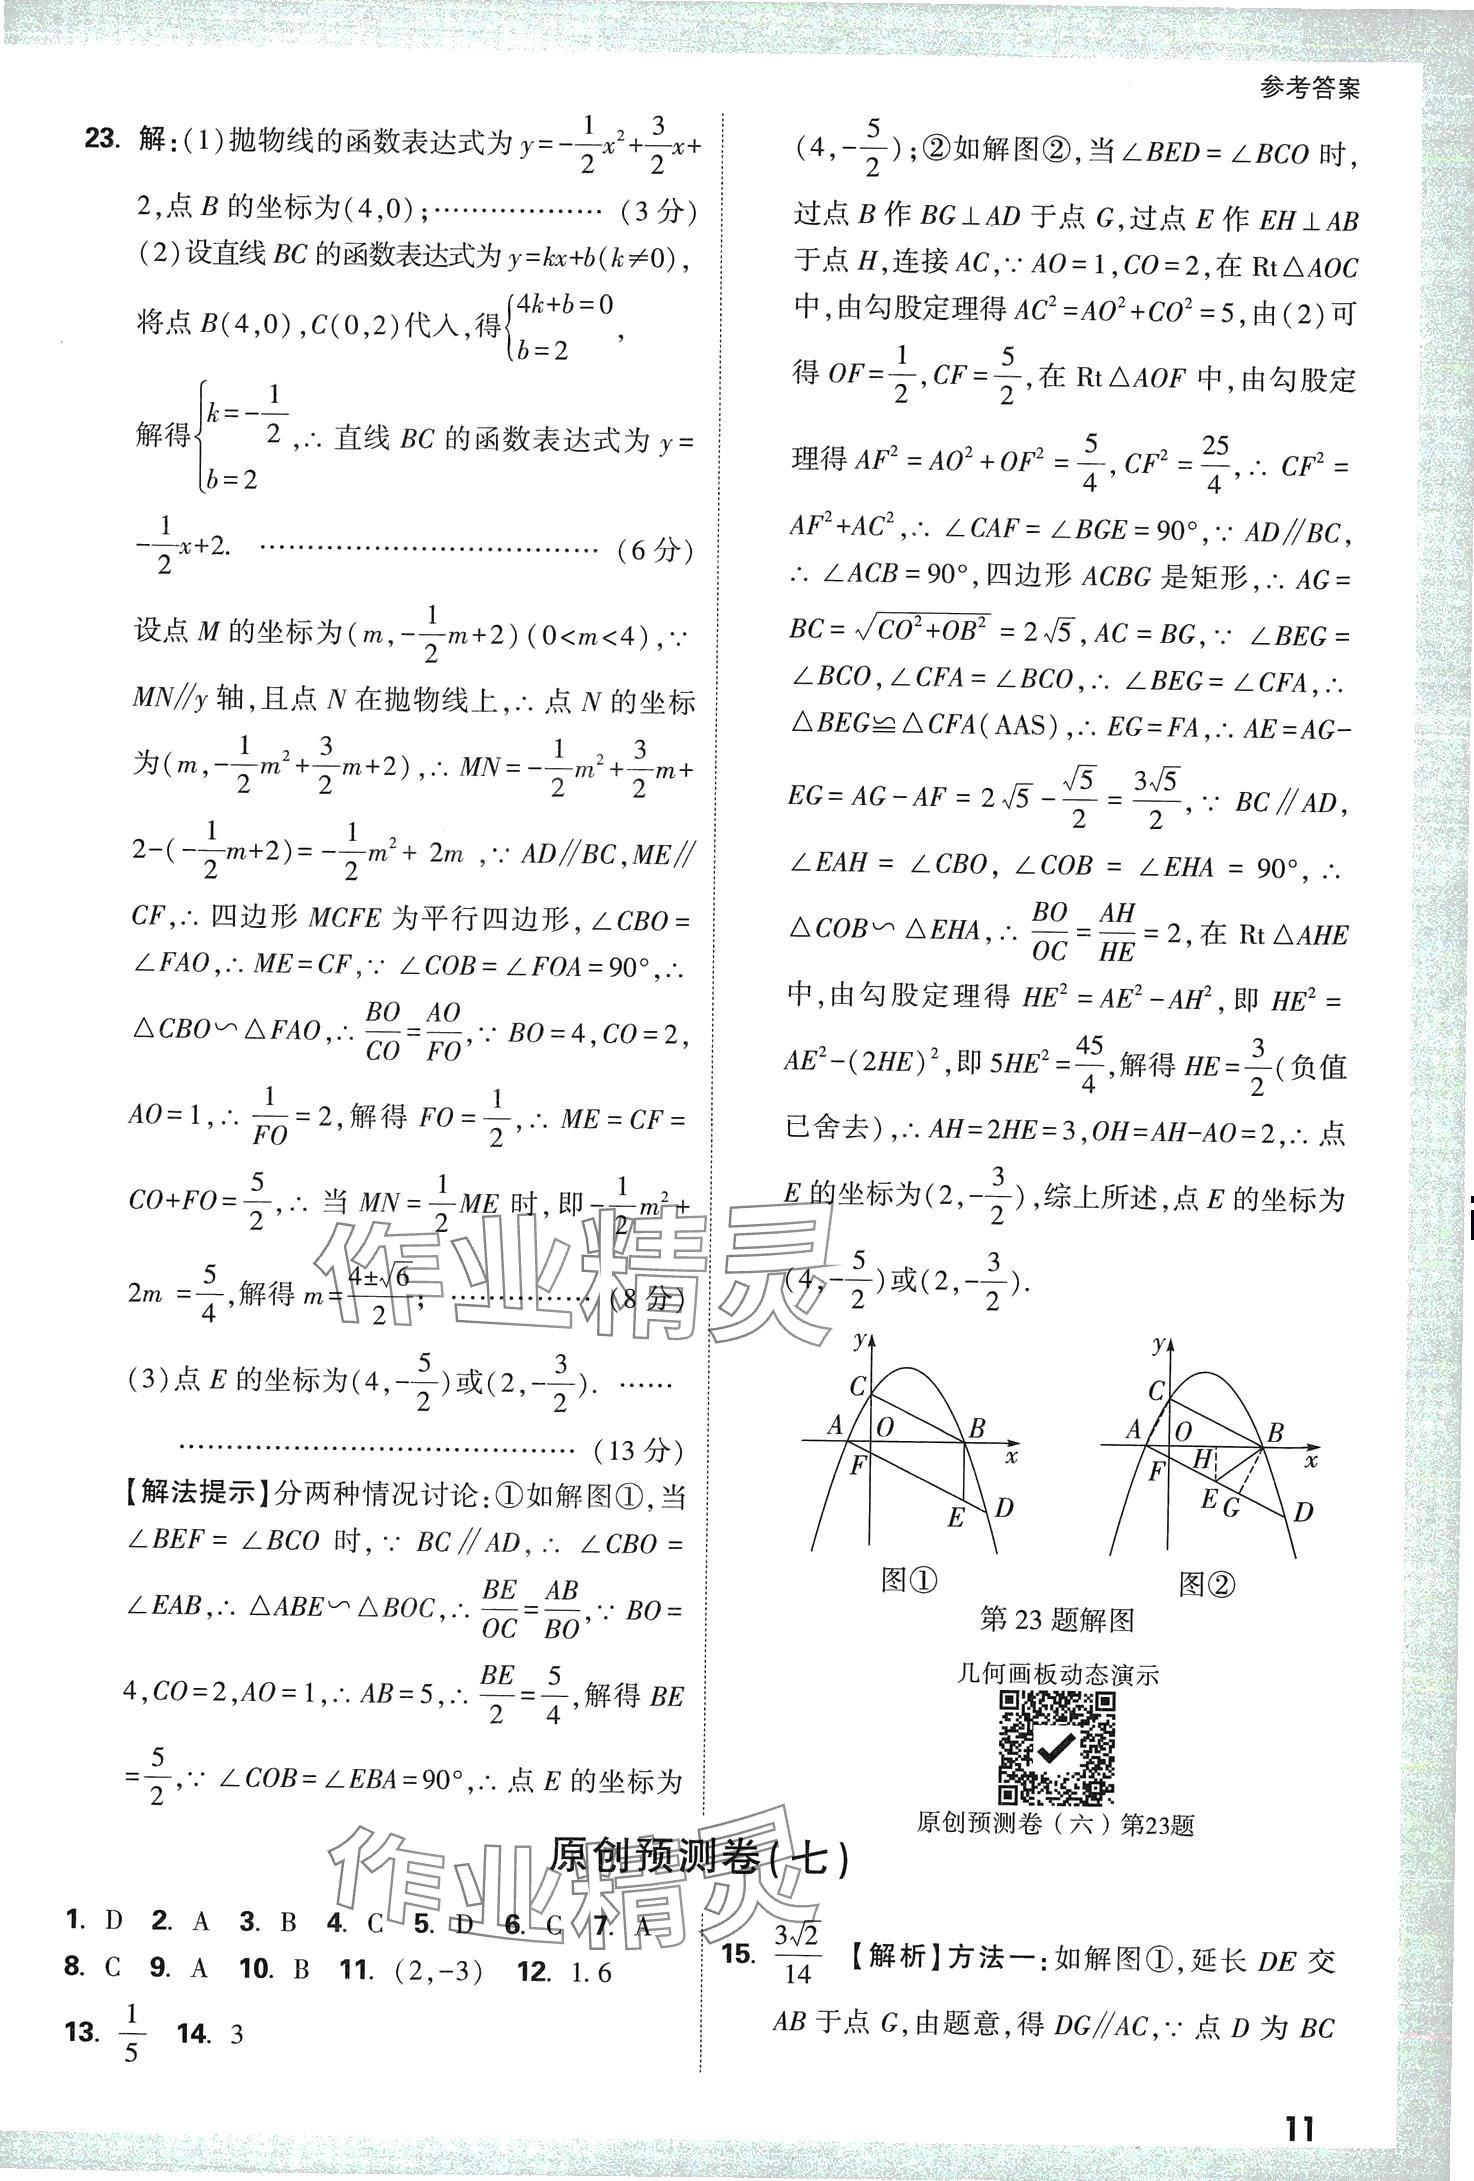 参考答案
23. 解:(1)抛物线的函数表达式为 y=-1/2x²+3/2x+
2,点 B 的坐标为(4,0);……………… (3 分)
(2)设直线 BC 的函数表达式为 y=kx+b(k≠0),
将点 B(4,0),C(0,2)代入,得{4k+b=0
b=2,
解得{k=-1/2
b=2,∴ 直线 BC 的函数表达式为 y=
-1/2x+2. ……………………………… (6 分)
设点 M 的坐标为(m,-1/2m+2)(0<m<4),∵
MN∥y 轴,且点 N 在抛物线上,∴ 点 N 的坐标
为(m,-1/2m²+3/2m+2),∴ MN=-1/2m²+3/2m+
2-(-1/2m+2)=-1/2m²+ 2m ,∵ AD∥BC,ME∥
CF,∴ 四边形 MCFE 为平行四边形,∠CBO=
∠FAO,∴ ME=CF,∵ ∠COB=∠FOA=90°,∴
△CBO∽△FAO,∴ BO/CO=AO/FO,∵ BO=4,CO=2,
AO=1,∴ 1/FO=2,解得 FO=1/2,∴ ME=CF=
CO+FO=5/2,∴ 当 MN=1/2ME 时,即-1/2m²+
2m =5/4,解得 m=(4±√6)/2; …………… (8 分)
(3)点 E 的坐标为(4,-5/2)或(2,-3/2). ……
…………………………………… (13 分)
【解法提示】分两种情况讨论:①如解图①,当
∠BEF= ∠BCO 时,∵ BC∥AD,∴ ∠CBO=
∠EAB,∴ △ABE∽△BOC,∴ BE/OC=AB/BO,∵ BO=
4,CO=2,AO=1,∴ AB=5,∴ BE/2=5/4,解得 BE
=5/2,∵ ∠COB=∠EBA=90°,∴ 点 E 的坐标为
(4,-5/2);②如解图②,当∠BED=∠BCO 时,
过点 B 作 BG⊥AD 于点 G,过点 E 作 EH⊥AB
于点 H,连接 AC,∵ AO=1,CO=2,在 Rt△AOC
中,由勾股定理得 AC²=AO²+CO²=5,由(2)可
得 OF=1/2,CF=5/2,在 Rt△AOF 中,由勾股定
理得 AF²=AO²+OF²=5/4,CF²=25/4,∴ CF²=
AF²+AC²,∴ ∠CAF=∠BGE=90°,∵ AD∥BC,
∴ ∠ACB=90°,四边形 ACBG 是矩形,∴ AG=
BC=√(CO²+OB²)=2√5,AC=BG,∵ ∠BEG=
∠BCO,∠CFA=∠BCO,∴ ∠BEG=∠CFA,∴
△BEG≌△CFA(AAS),∴ EG=FA,∴ AE=AG-
EG=AG-AF=2√5-√5/2=3√5/2,∵ BC∥AD,
∠EAH=∠CBO,∠COB=∠EHA=90°,∴
△COB∽△EHA,∴ BO/OC=AH/HE=2,在 Rt△AHE
中,由勾股定理得 HE²=AE²-AH²,即 HE²=
AE²-(2HE)²,即 5HE²=45/4,解得 HE=3/2(负值
已舍去),∴ AH=2HE=3,OH=AH-AO=2,∴ 点
E 的坐标为(2,-3/2),综上所述,点 E 的坐标为
(4,-5/2)或(2,-3/2).
y C A O B x F E D
图①
y C A O B x F H E G D
图②
第 23 题解图
几何画板动态演示
原创预测卷(六)第23题
作业精灵
作业精灵
原创预测卷(七)
1. D 2. A 3. B 4. C 5. D 6. C 7. A
8. C 9. A 10. B 11. (2,-3) 12. 1.6
13. 1/5 14. 3
15. 3√2/14 【解析】方法一:如解图①,延长 DE 交
AB 于点 G,由题意,得 DG∥AC,∵ 点 D 为 BC
11